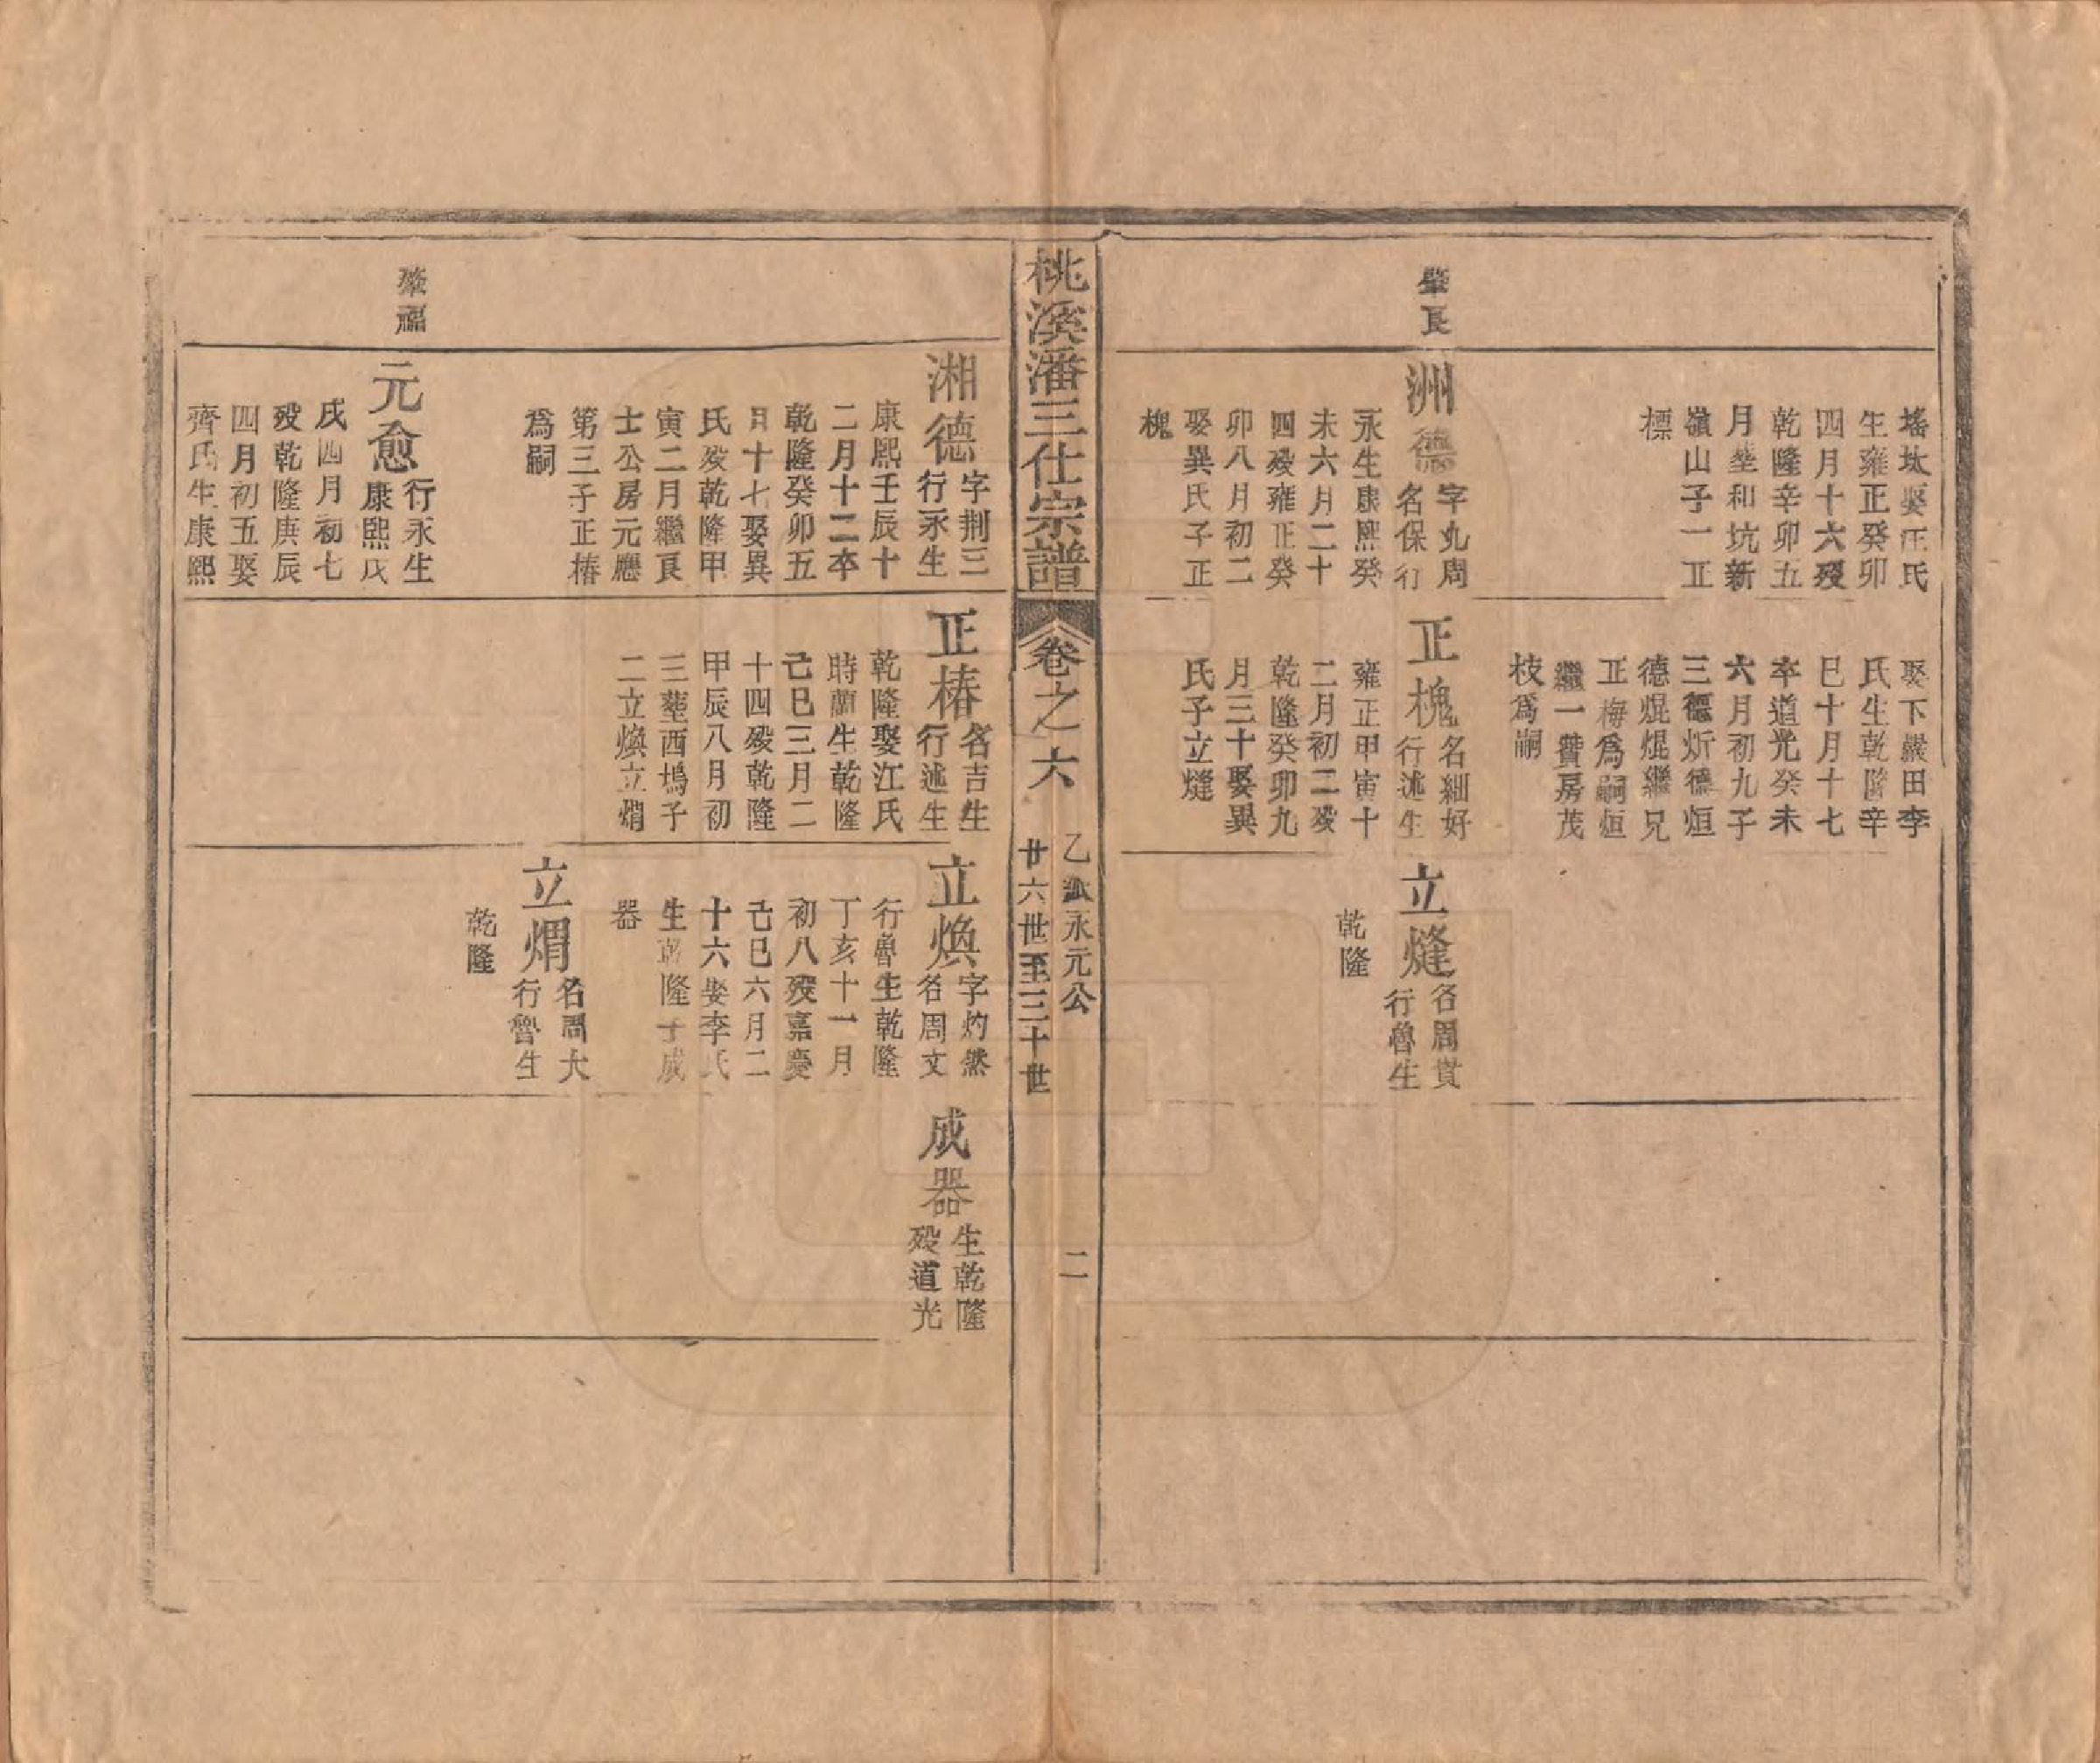 肇艮
瑤圦娶汪氏
生雍正癸卯
四月十六歿
乾隆辛卯五
月塟和坑新
嶺山子一正
標
洲德
字丸周
名保行
永生康熙癸
未六月二十
四歿雍正癸
卯八月初二
娶異氏子正
槐
娶下嚴田李
氏生乾隆辛
巳十月十七
卒道光癸未
六月初九子
三德炘德烜
德焜焜繼兄
正梅爲嗣烜
繼一贊房茂
枝爲嗣
正槐
名細好
行述生
雍正甲寅十
二月初二歿
乾隆癸卯九
月三十娶異
氏子立熢
立熢
名周貴
行魯生
乾隆
桃溪潘三仕宗譜
卷之六
乙派永元公
廿六世至三十世
二
肇福
湘德
字荆三
行永生
康熙壬辰十
二月十二卒
乾隆癸卯五
月十七娶異
氏歿乾隆甲
寅二月繼艮
士公房元應
第三子正椿
爲嗣
元愈
行永生
康熙戊
戌四月初七
歿乾隆庚辰
四月初五娶
齊氏生康熙
正椿
名吉生
行述生
乾隆娶江氏
時蘭生乾隆
己巳三月二
十四歿乾隆
甲辰八月初
三塟西塢子
二立煥立熠
立煥
字灼然
名周文
行魯生乾隆
丁亥十一月
初八歿嘉慶
己巳六月二
十六娶李氏
生乾隆子成
器
立熠
名周大
行魯生
乾隆
成器
生乾隆
歿道光